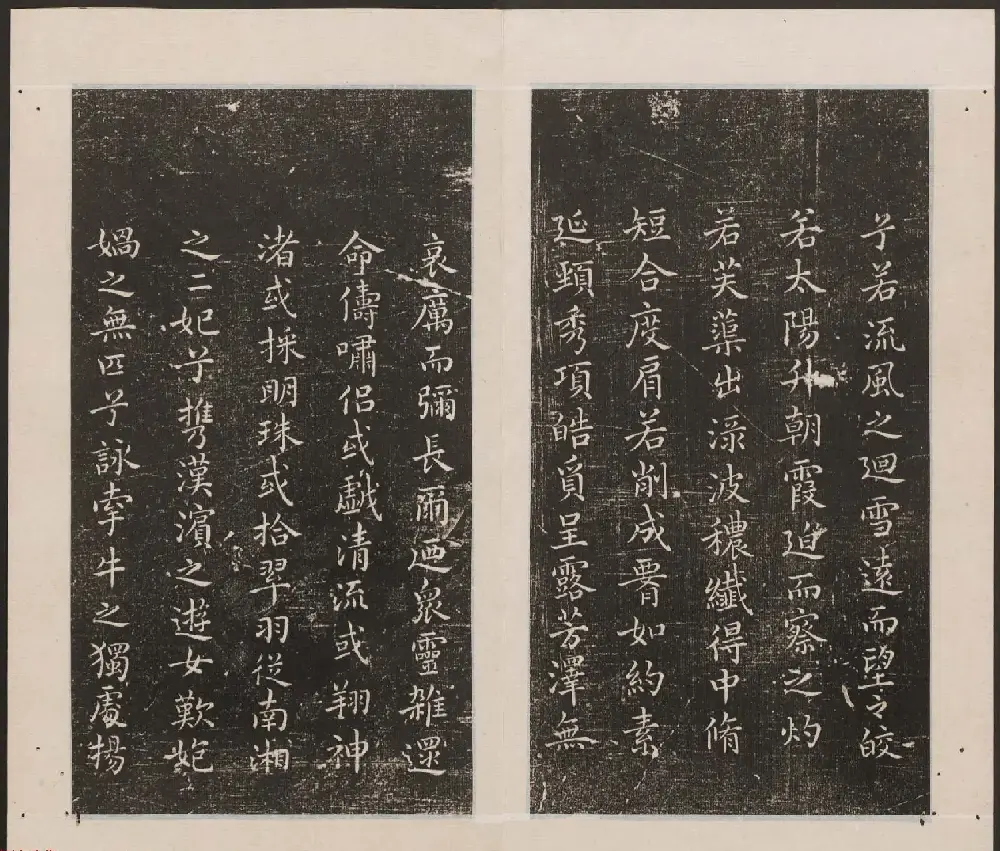 兮若流風之迴雪遠而望之皎
若太陽升朝霞迫而察之灼
若芙蕖出淥波穠纖得中脩
短合度肩若削成𦝫如約素
延頸秀項皓質呈露芳澤無
哀厲而彌長爾迺衆靈雜遝
命儔嘯侣或戲清流或翔神
渚或採明珠或拾翠羽從南湘
之二妃兮攜漢濱之遊女歎匏
媧之無匹兮詠牽牛之獨處揚